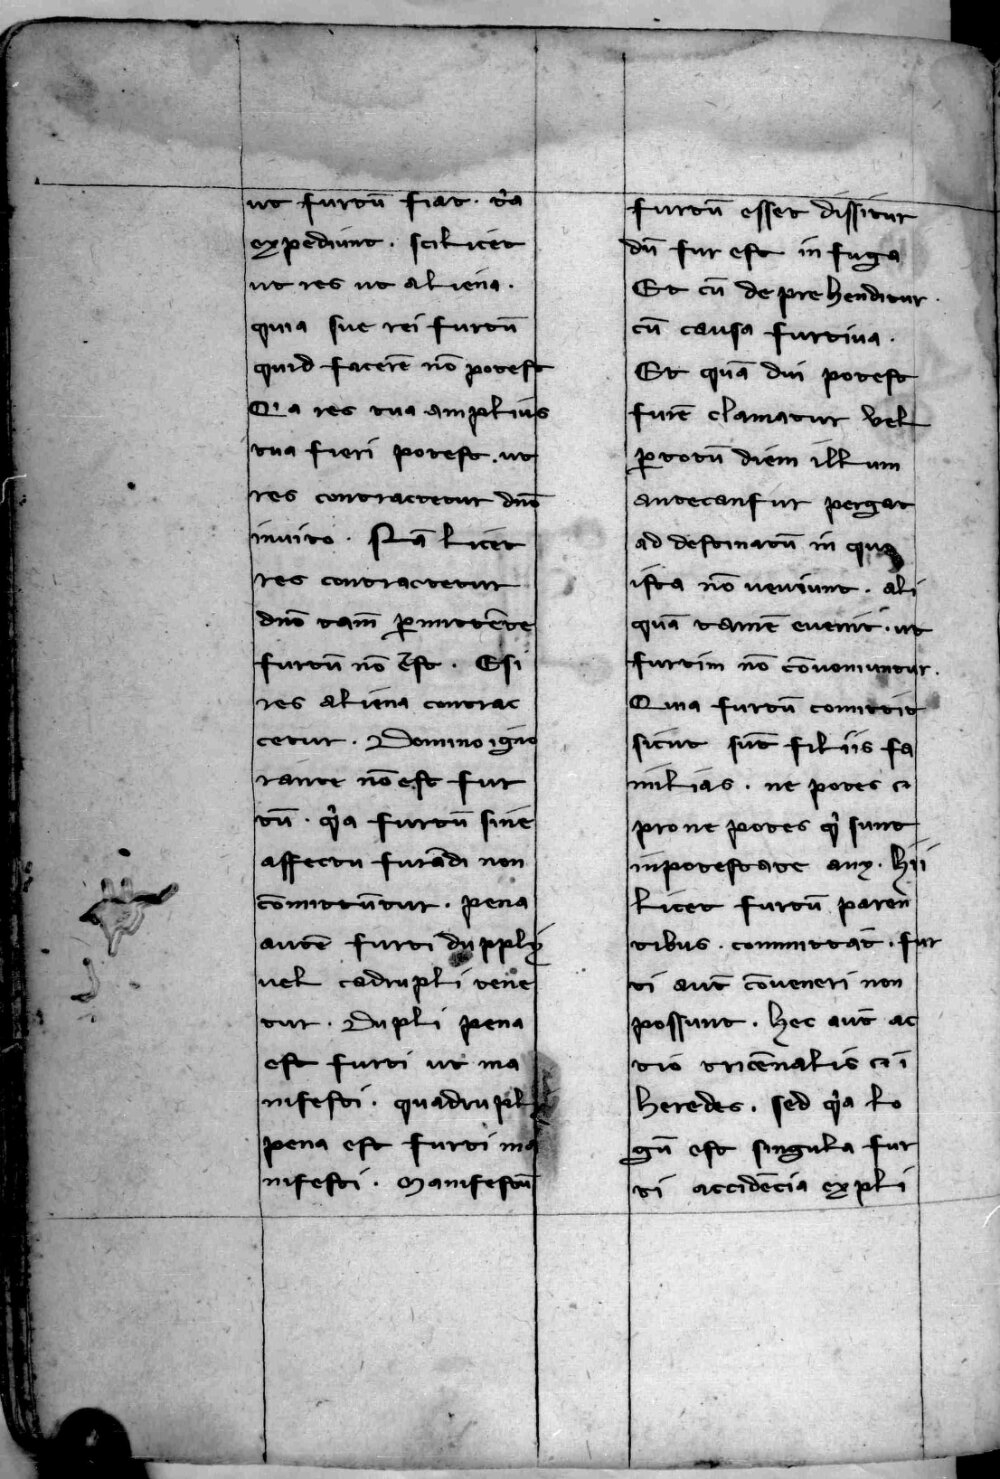 ut furtū fiat. tͥa
expediunt. scilicet
ut res ut aliena.
quia sue rei furtū
quid facerē nō potest
Qͥa res tua amplius
tua fieri potest. ut
res contractetur dnō
inuito. Nā licet
res contractetur
dnō tam̄ ꝑmittēte
furtū nō ēst. Esi
res aliena contrac
cetur. Domino igno
rante nō est fur
tū. qͥa furtū sine
affectu furādi non
cōmittūtur. pena
autē furti dupply
uel cadrupli tene
tur. Dupli pena
est furti ut ma
nifesti. quadrupli
pena est furti ma
nifesti. Manifestū
furtū esset dissitur
dū fur est in fuga
Et cū deprehenditur.
cū causa furtiua.
Et quā diu potest
furē clamatur vel
ꝑ totū diem illum
antecanfur pergat
ad destinatū in qua
ista nō veniunt. ali
quā tamē euenit. ut
furtim nō cōuomuntur.
Quia furtū comittit
sicut sūt filiis fa
milias. nepotes
pronepotes qͥ sunt
inpotestate
licet furtū paren
tibus. committāt. fur
ti aut̄ cōueneri non
possunt. hec aut̄ ac
tio tricēnalis
heredes. sed qͥa lo
gū est singula fur
ti accidēcia expli